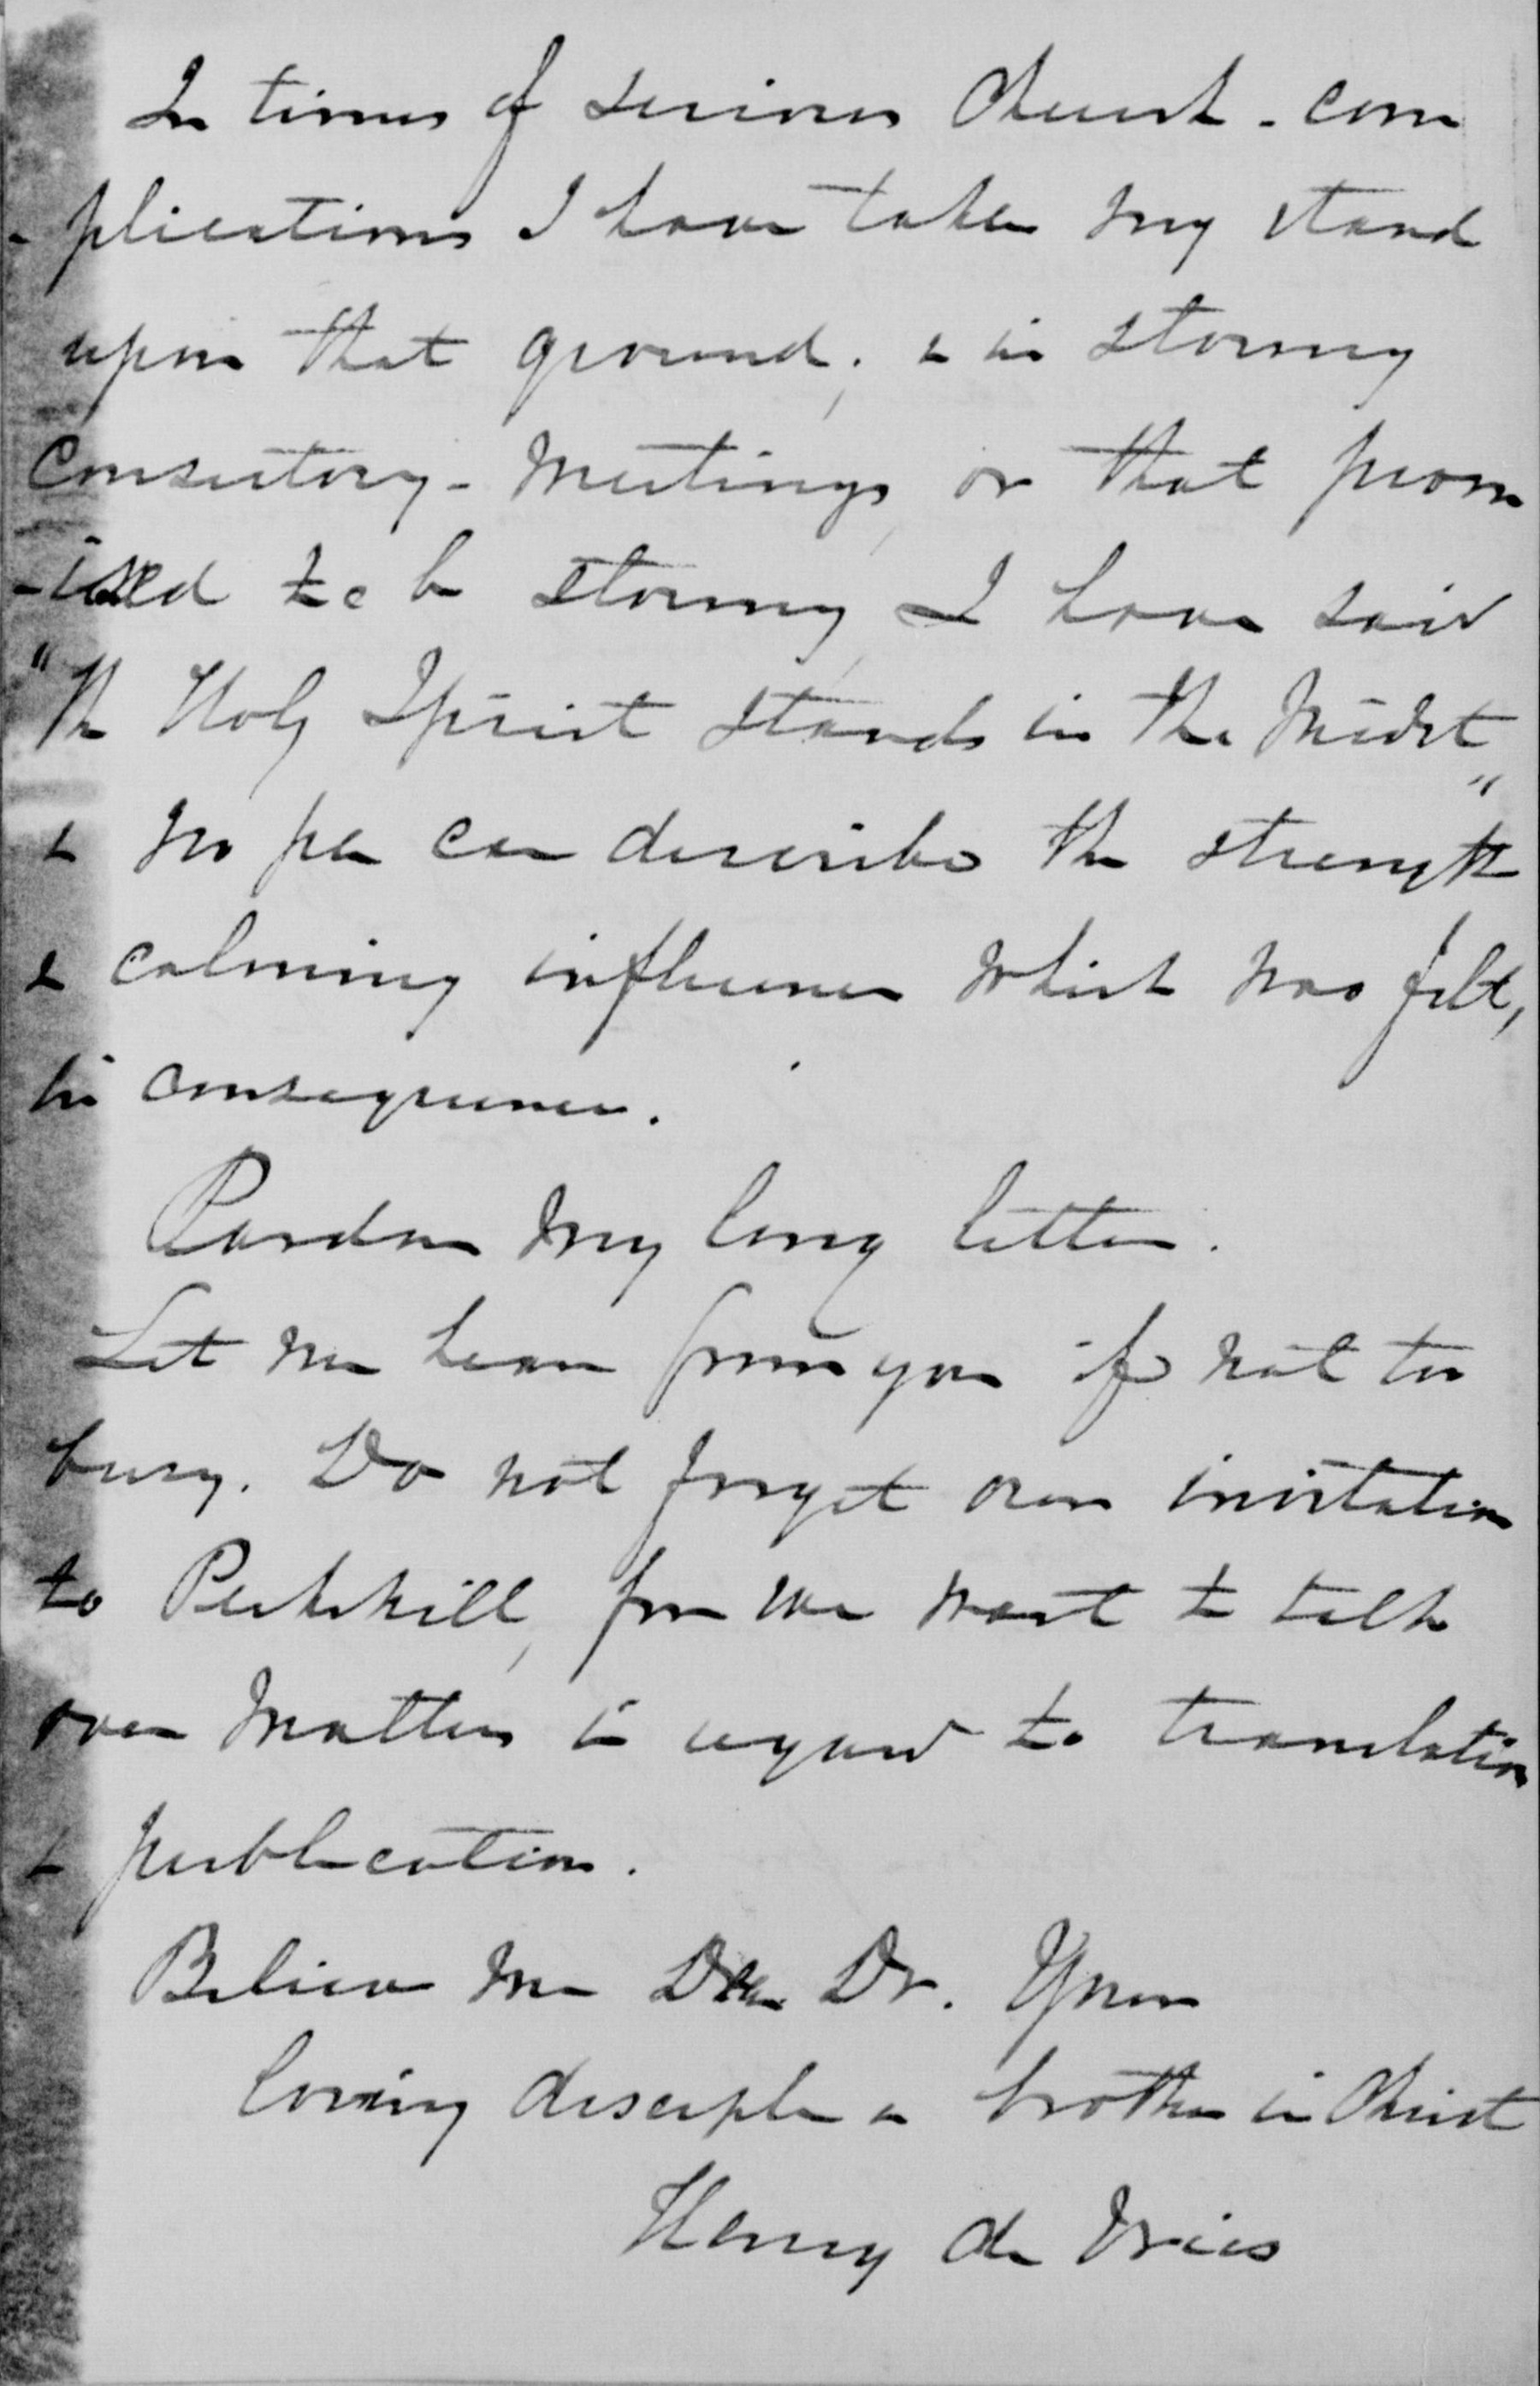 In times of serious Church-com
-plications I have taken my stand
upon that ground; & in stormy
Consistory-meetings, or that prom
-ised to be stormy, I have said
"The Holy Spirit stands in the midst"
& no pen can describe the strength
& calming influence which was felt,
in consequence.
Pardon my long letter.
Let me hear from you if not too
busy. Do not forget our invitation
to Peekskill, for we want to talk
over matters in regard to translation
& publication.
Believe me Dear Dr. Your
loving disciple & brother in Christ
Henry de Vries